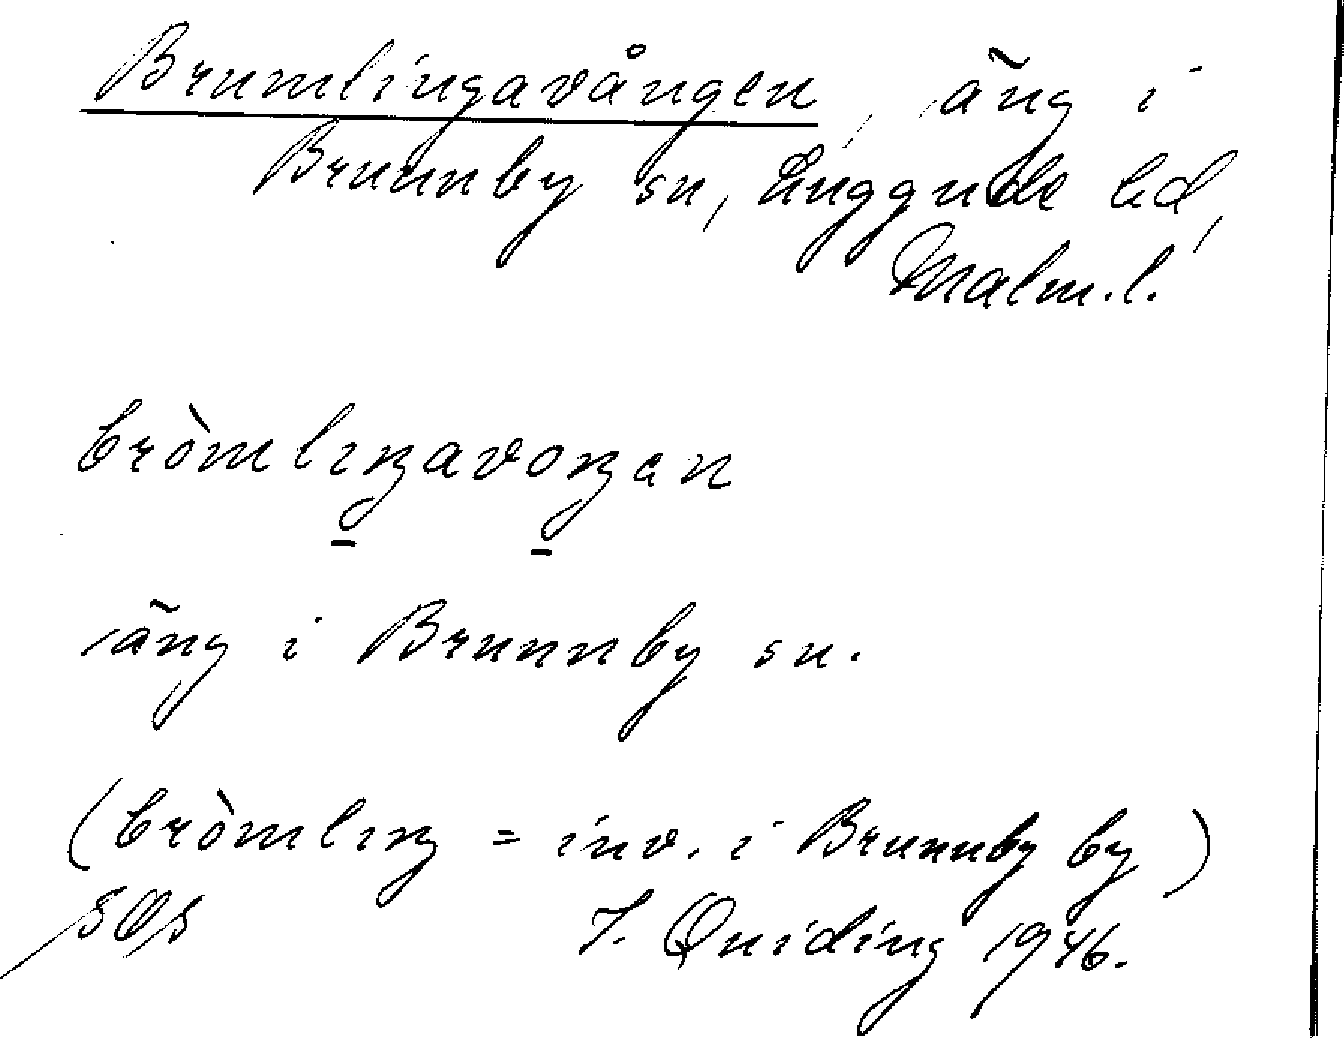 Brumlingavången, äng i
Brunnby sn, Luggude hd,
Malm.l.
bròmlıŋavoŋan
äng i Brunnby sn.
(bròmlıŋ = inv. i Brunnby by)
Quiding 1946.